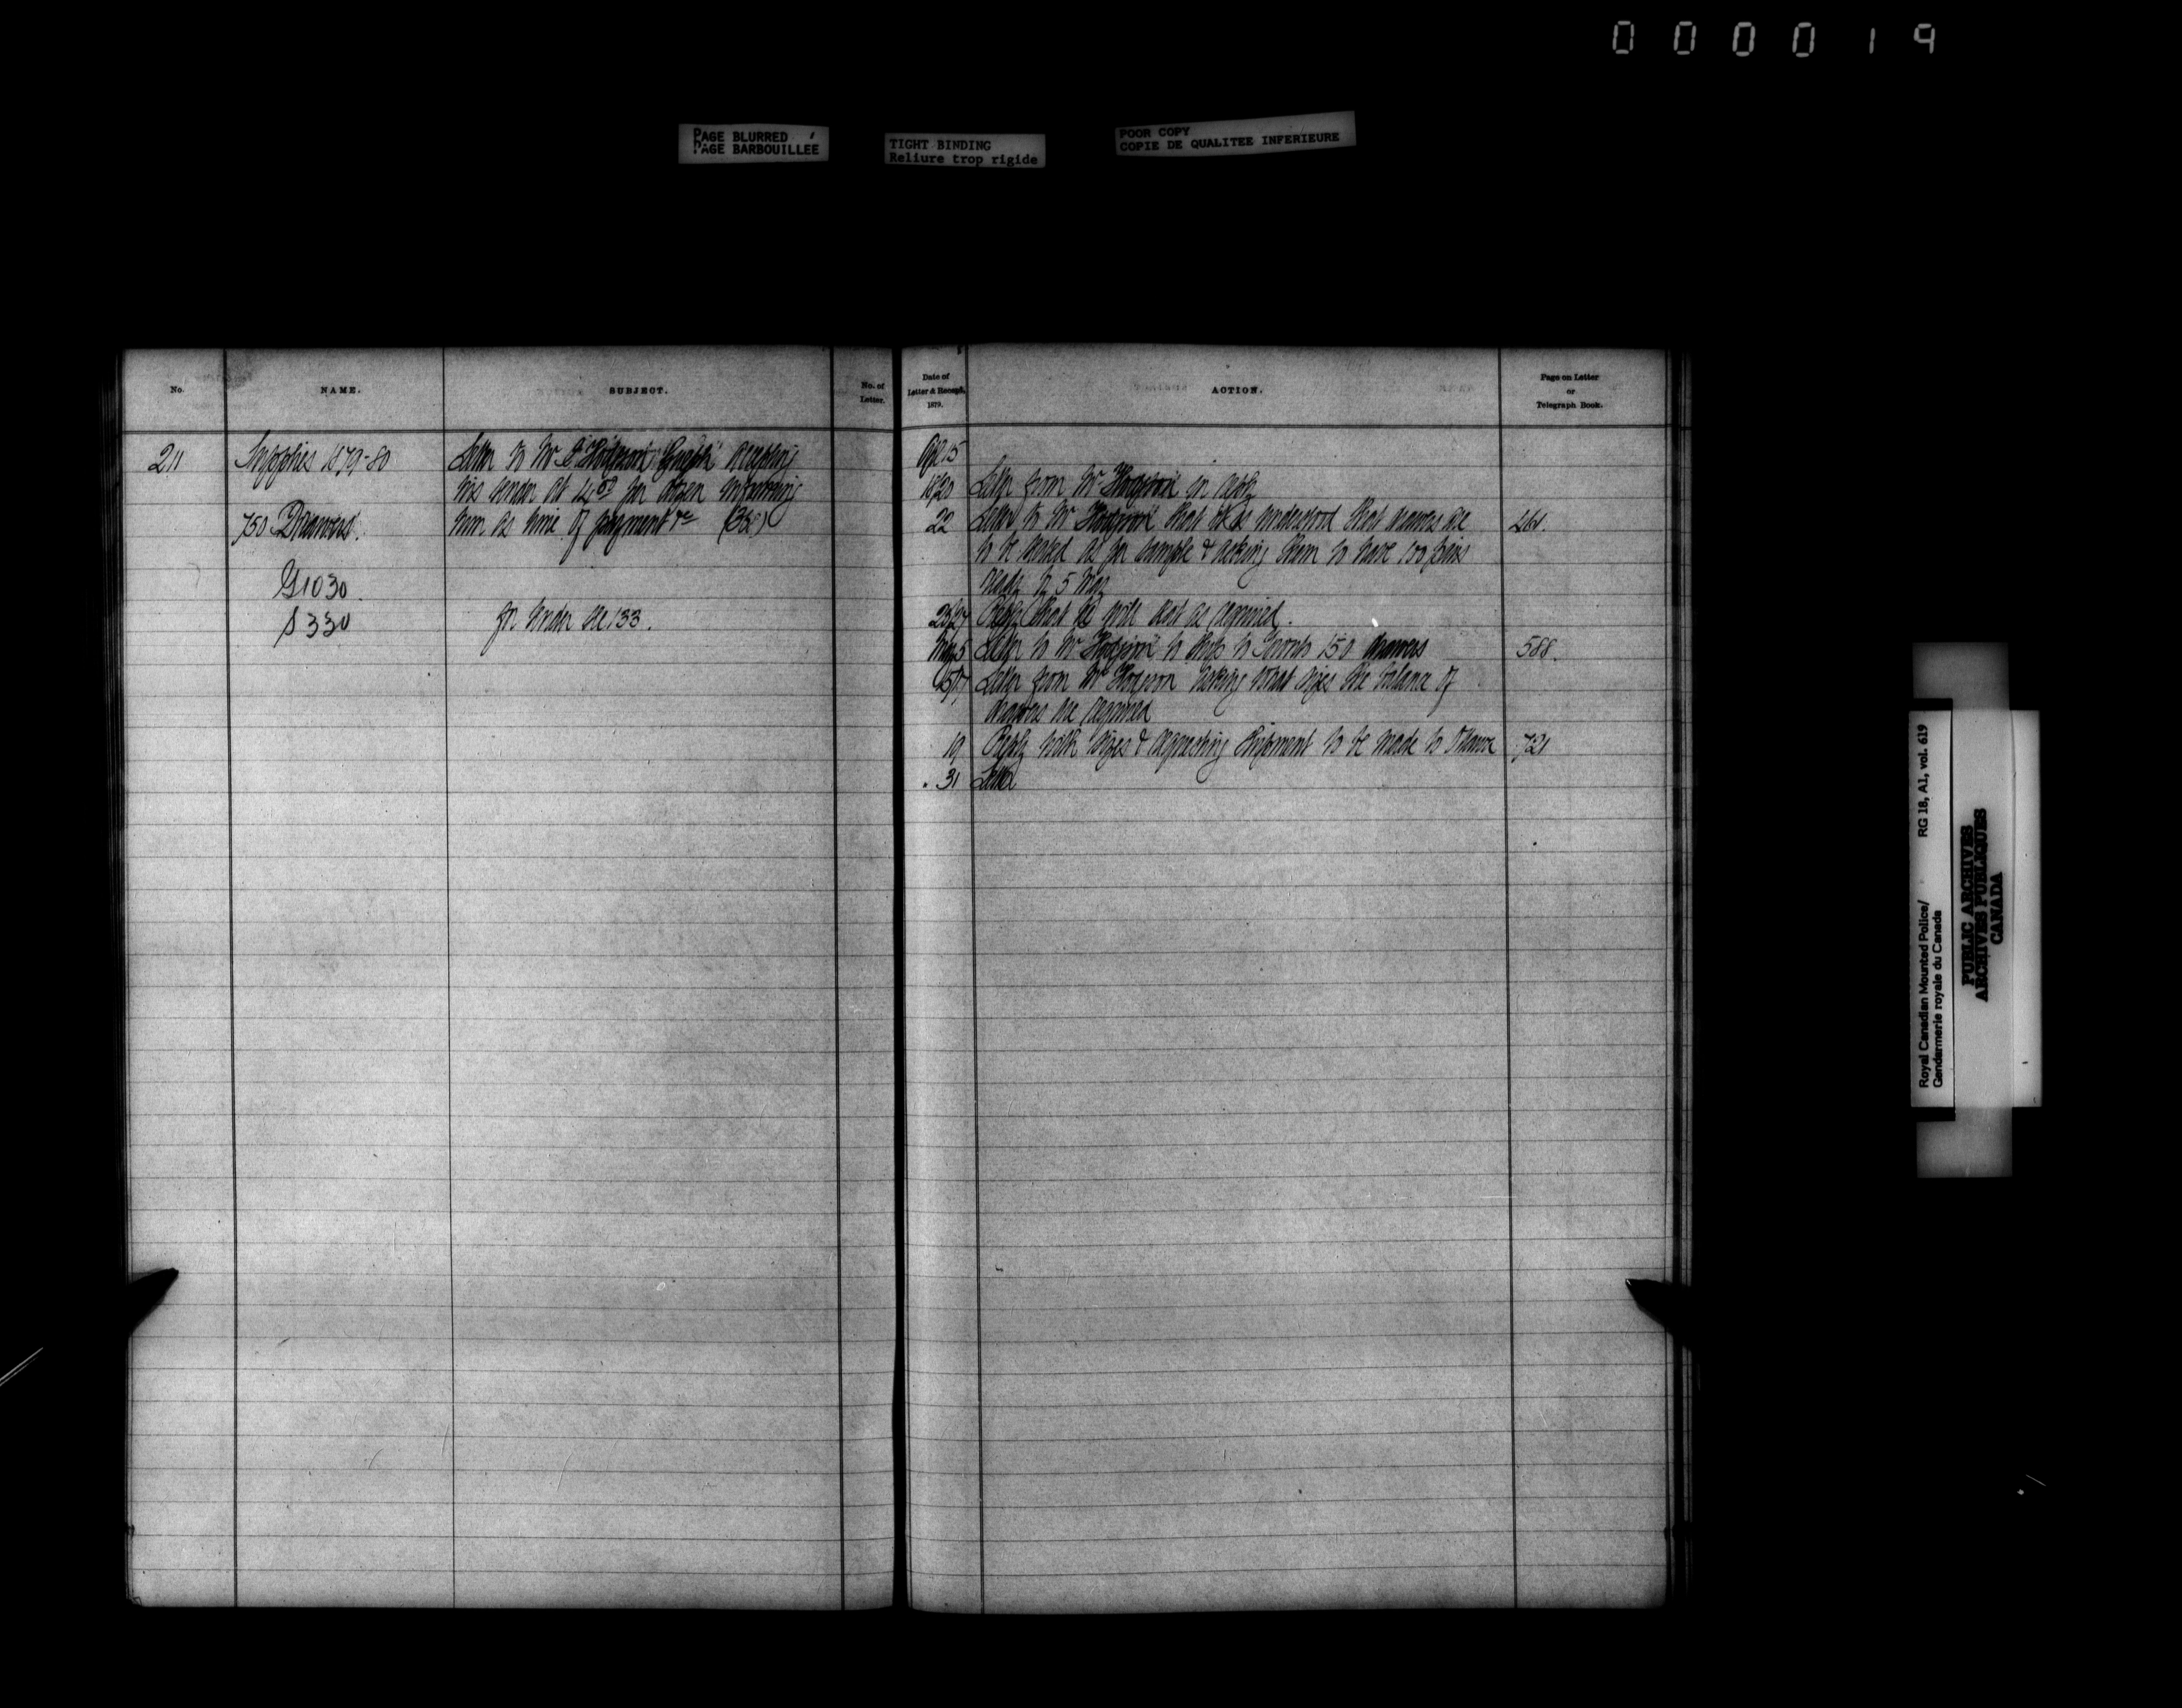 000019
PAGE BLURRED
PAGE BARBOUILLEE
TIGHT BINDING
Reliure trop rigide
POOR COPY
COPIE DE QUALITEE INFERIEURE
No.
NAME.
SUBJECT.
No. of
Letter.
Date of
Letter & Receipt.
1879.
ACTION.
Page on Letter
or
Telegraph Book.
211
Supplies 1879-80
Letter to Mr C. Hodgson Guelph accepting
his tender at 14.00 per dozen informing
him as time of payment &c (368)
750 Drawers.
G1030.
S330
for tender see 133.
Apl 15
18/20 Letter from Mr Hodgson in reply
22 Letter to Mr Hodgson that it is understood that drawers are
to be seated as per sample & asking them to have 100 pairs
ready by 5 May
461.
25/27 Reply that he will act as required.
May 5 Letter to Mr Hodgson to ship to Toronto 150 drawers
588.
15/17 Letter from Mr Hodgson asking what sizes the balance of
drawers are required
19 Reply with sizes & requesting shipment to be made to Ottawa
721
31 Letter
Royal Canadian Mounted Police/ RG 18, A1, vol. 619
Gendarmerie royale du Canada
PUBLIC ARCHIVES
ARCHIVES PUBLIQUES
CANADA